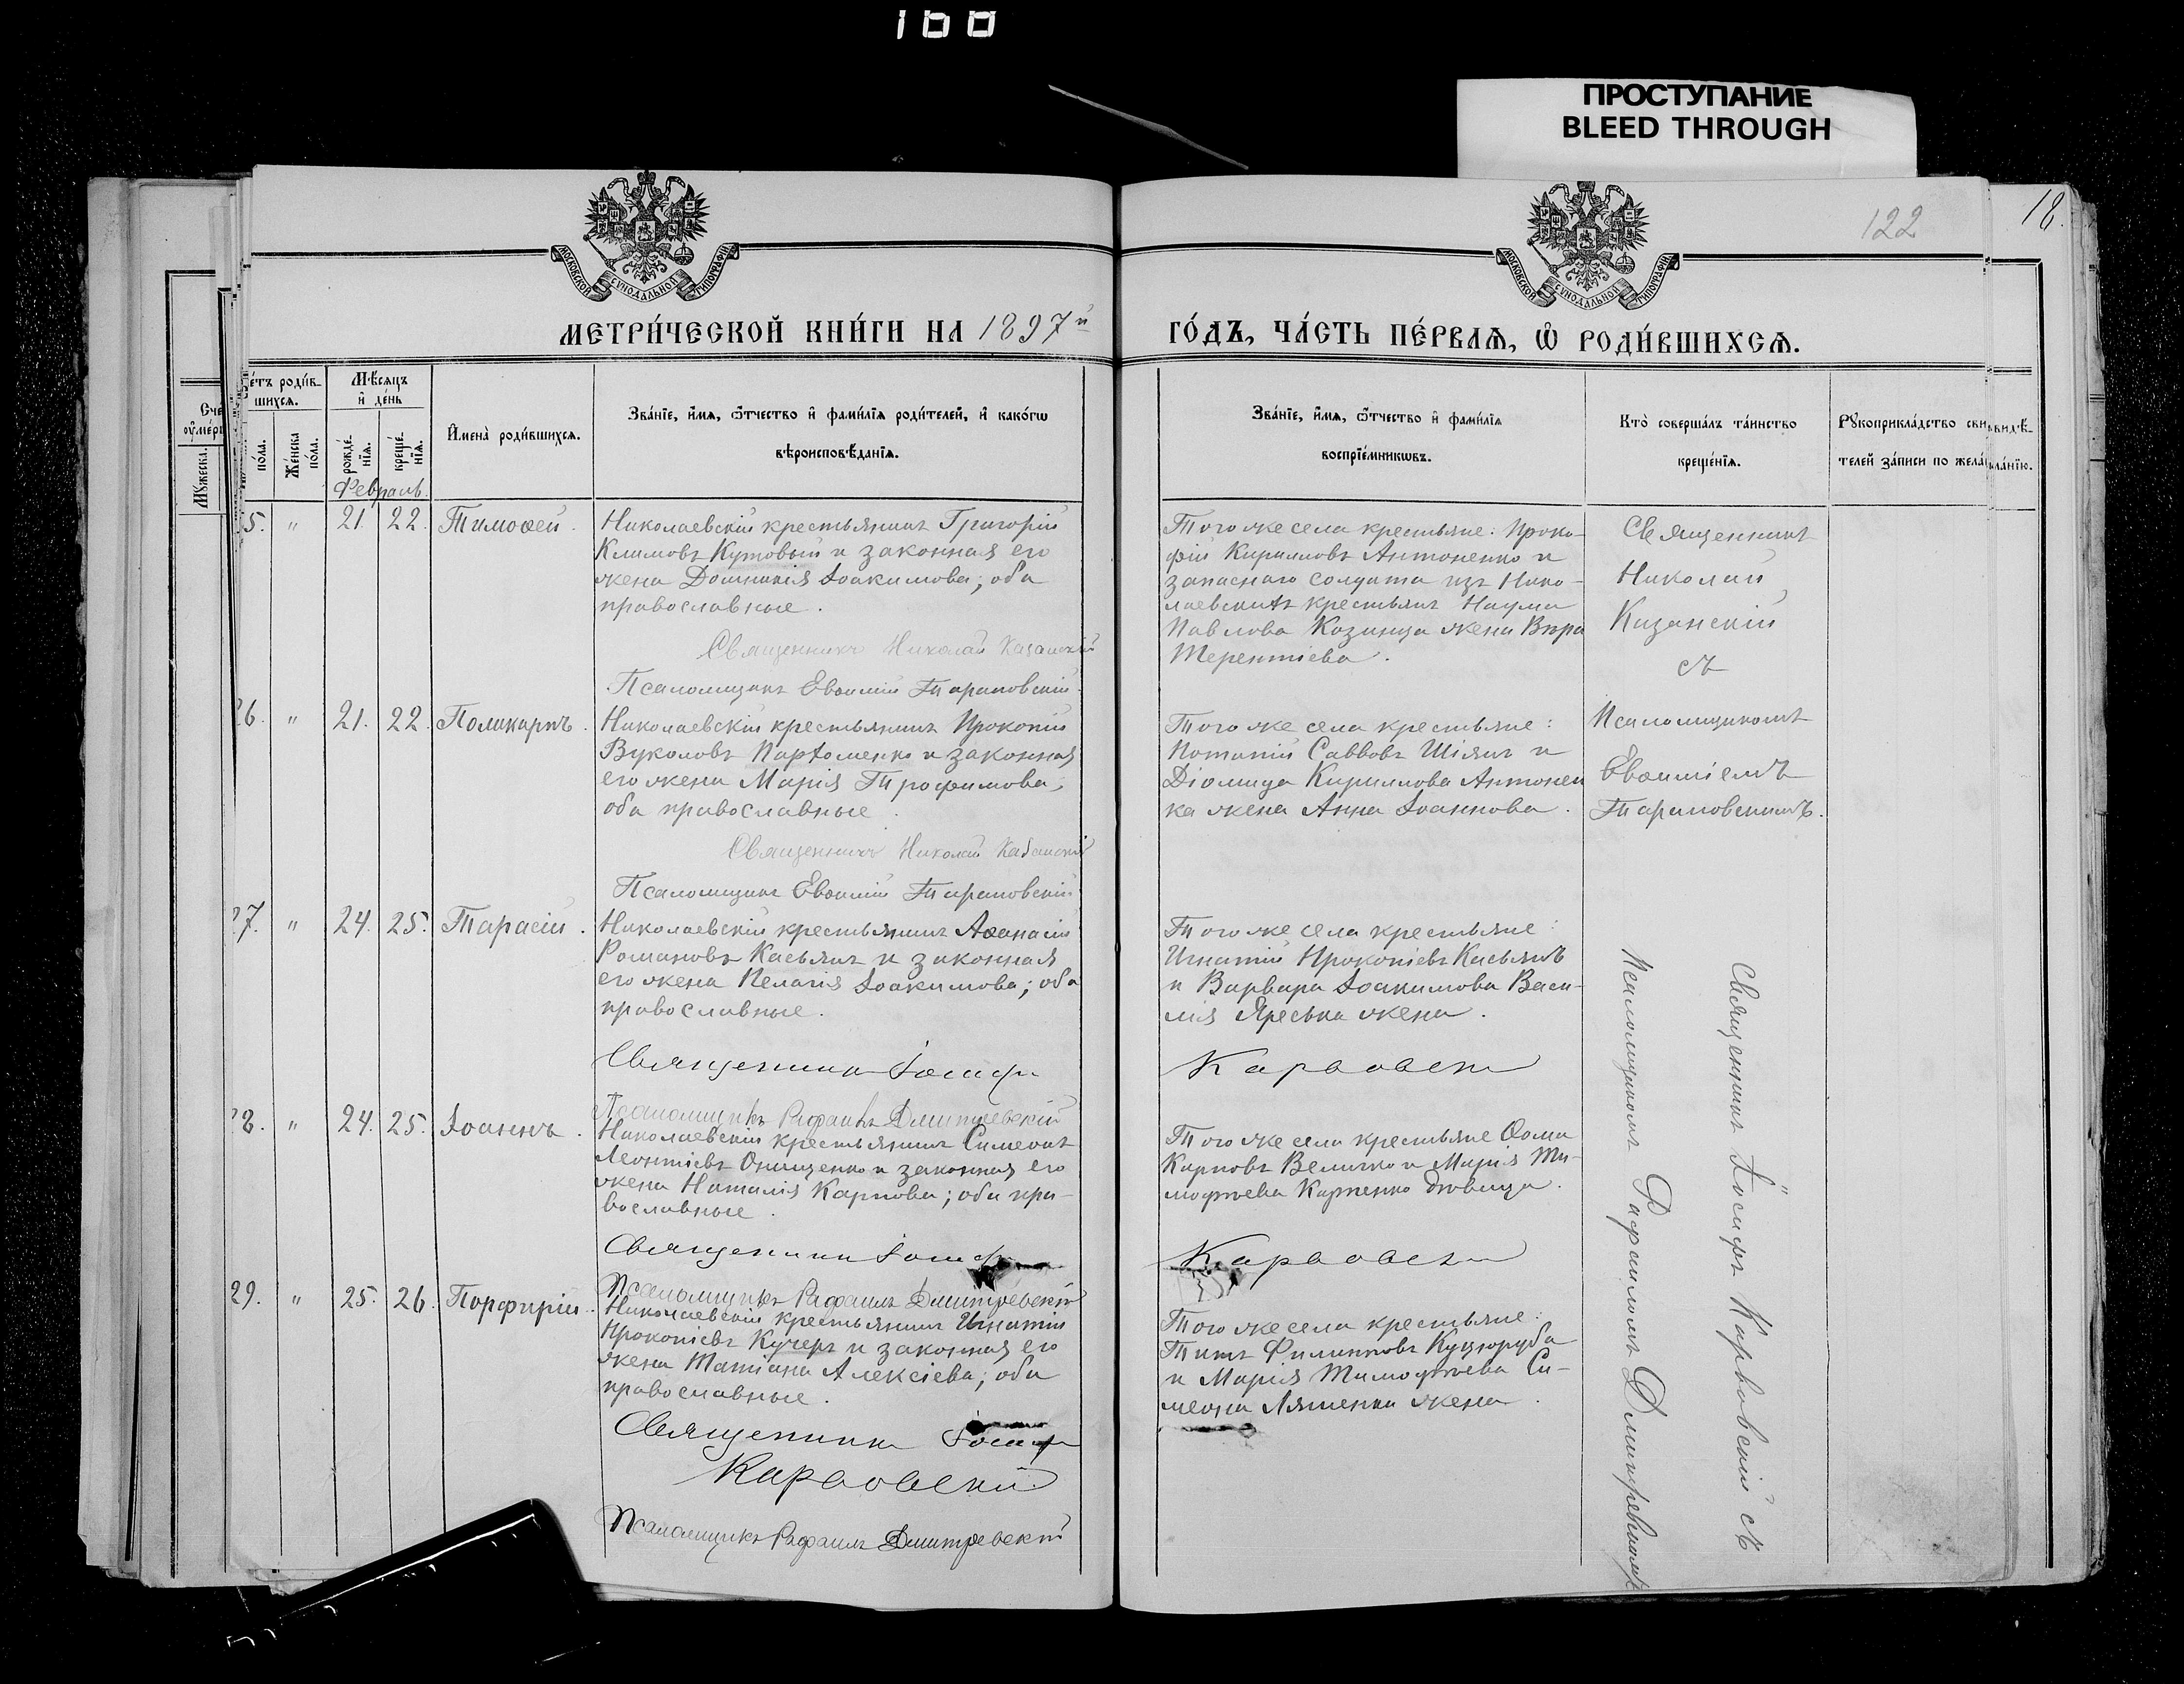 100
ПРОСТУПАНИЕ
BLEED THROUGH
122
18.
МОСКОВСКОЙ СѴНОДАЛЬНОЙ ТИПОГРАФІИ
МОСКОВСКОЙ СѴНОДАЛЬНОЙ ТИПОГРАФІИ
МЕТРИ́ЧЕСКОЙ КНИ́ГИ НА 1897й
ГО́ДЪ, ЧА́СТЬ ПЕ́РВАѦ, Ѿ РОДИ́ВШИХСѦ.
Мѣ́сяцъ
и҆ де́нь
шихся.
по́ла.
Же́нска
по́ла.
рожде́
нїя.
креще́
нїя.
И҆мена̀ роди́вшихся.
Зва́нїе, и҆́мя, ѻ҆́тчество и҆ фами́лїя роди́телей, и҆ како́гѡ
вѣроисповѣ́данїя.
Зва́нїе, и҆́мя, ѻ҆́тчество и҆ фами́лїя
воспрїе́мникѡвъ.
Кто̀ соверша́лъ та́инство
креще́нїя.
Рꙋкоприкла́дство сви
телей за́писи по жела́
Мꙋжеска.
Февраль.
5. " 21. 22. Тимоѳей.
Николаевскій крестьянинъ Григорій
Климовъ Кутовый и законная его
жена Домникія Іоакимова; оба
православные.
Священникъ Николай Казанскій
Псаломщикъ Евѳимій Тарановскій
Того же села крестьяне: Проко-
фій Кирилловъ Антоненко и
запаснаго солдата изъ Нико-
лаевскихъ крестьянъ Наума
Павлова Козинца жена Вѣра
Терентіева.
Священникъ
Николай
Казанскій
съ
Псаломщикомъ
Евѳиміемъ
Тарановскимъ.
26. " 21. 22. Поликарпъ.
Николаевскій крестьянинъ Прокопій
Вуколовъ Пархоменко и законная
его жена Марія Трофимова,
оба православные.
Священникъ Николай Казанскій
Псаломщикъ Евѳимій Тарановскій
Того же села крестьяне:
Потапій Саввовъ Шіянъ и
Діомида Кириллова Антонен
ка жена Анна Іоаннова.
27. " 24. 25. Тарасій.
Николаевскій крестьянинъ Аѳанасій
Романовъ Касьянъ и законная
его жена Пелагія Іоакимова; оба
православные.
Священникъ Іосифъ
Того же села крестьяне:
Игнатій Прокопіевъ Касьянъ
и Варвара Іоакимова Васи-
лія Яреська жена.
Карповскій
28. " 24. 25. Іоаннъ.
Псаломщикъ Рафаилъ Дмитревскій
Николаевскій крестьянинъ Симеонъ
Леонтіевъ Онищенко и законная его
жена Наталія Карпова; оба пра-
вославные.
Священникъ Іосифъ
Того же села крестьяне Ѳома
Карповъ Величко и Марія Ти-
моѳѣева Карпенко дѣвица.
Карповскій
29. " 25. 26. Порфирій.
Псаломщикъ Рафаилъ Дмитревскій
Николаевскій крестьянинъ Игнатій
Прокопіевъ Кучеръ и законная его
жена Татіана Алексіева; оба
православные.
Священникъ Іосифъ
Карповскій
Псаломщикъ Рафаилъ Дмитревскій
Того же села крестьяне:
Титъ Филипповъ Куцоруба
и Марія Тимофѣева Си-
меона Ляшенка жена.
Священникъ Іосифъ Карповскій съ
Псаломщикомъ Рафаиломъ Дмитревскимъ